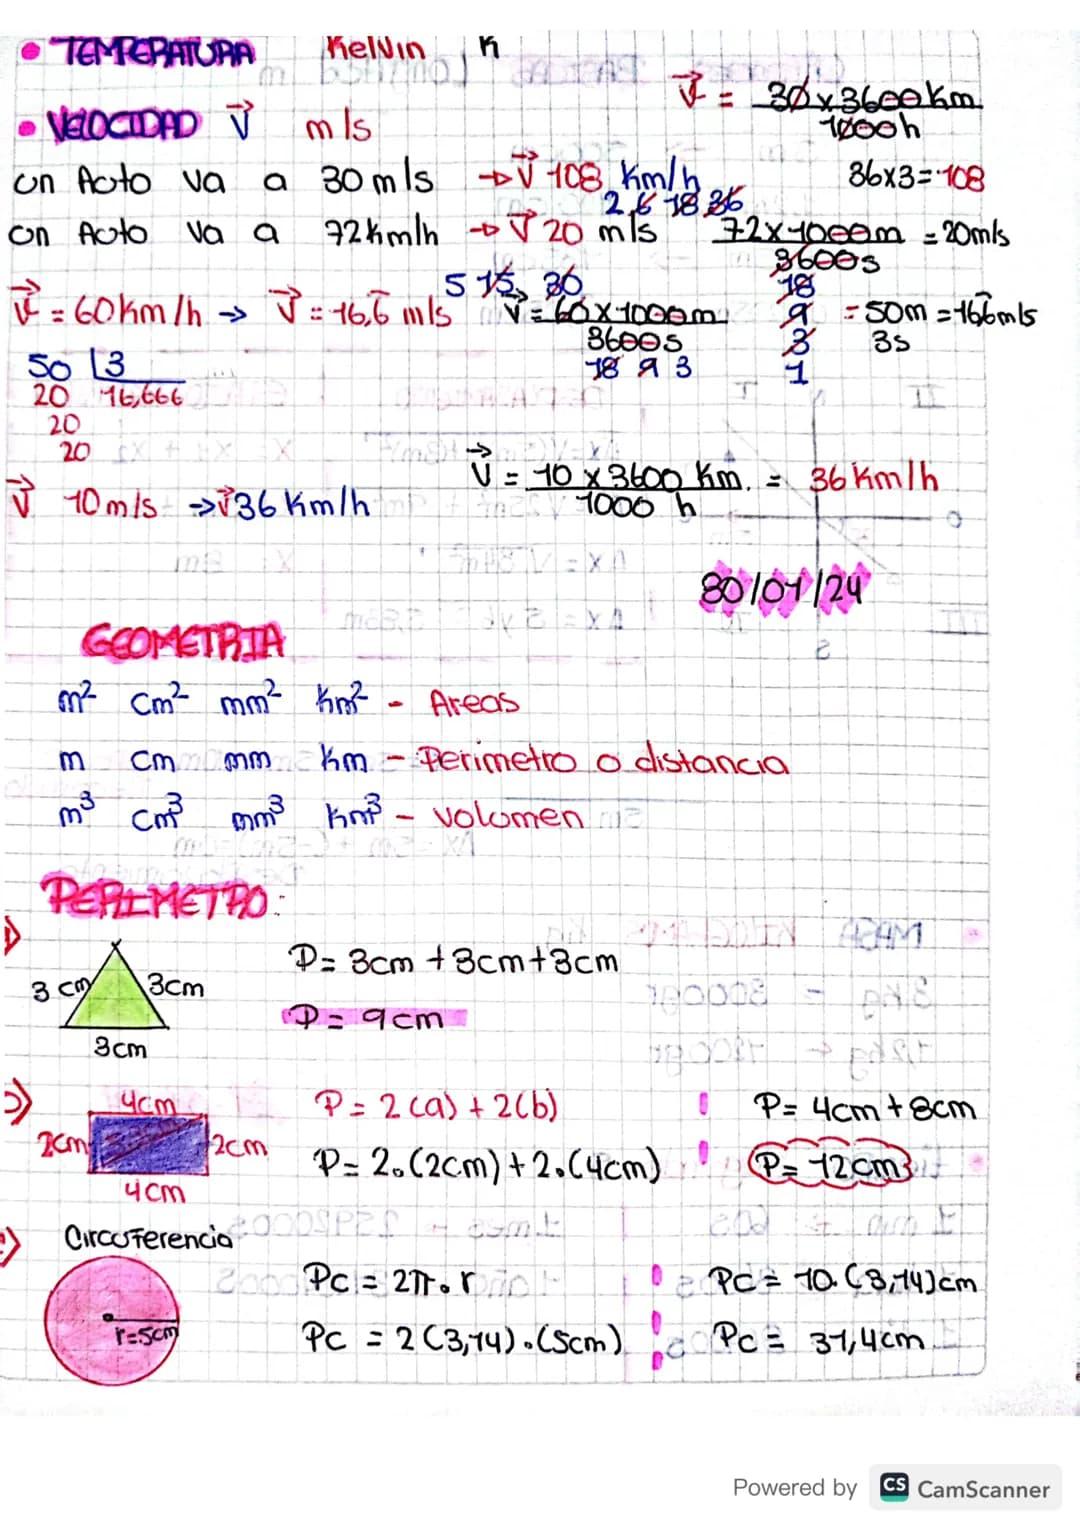 • TEMPERATURA Kelvin K
• VELOCIDAD V⃗ m/s
V⃗ = 30x3600Km
1000h
un Auto va a 30 m/s → V⃗ 108 Km/h
36x3=108
2,6 18 36
un Auto va a 72Km/h → V⃗ 20 m/s
72x1000m = 20m/s
3600s
18
9
3
1
5 15 30
V⃗ = 60Km/h → V⃗ = 16,6̄ m/s
V⃗ = 60x1000m
3600s
18 9 3
= 50m = 166̄m/s
3s
50 |3
20 16,666
20
20
V⃗ = 10 x 3600 Km. = 36 Km/h
1000 h
V⃗ 10 m/s → V⃗ 36 Km/h
30/01/24
GEOMETRIA
m² cm² mm² Km² - Areas
m cm mm Km - Perimetro o distancia
m³ cm³ mm³ Km³ - volumen
PERIMETRO:
3 cm 3cm
3cm
P= 3cm + 3cm+3cm
P= 9cm
4cm
2cm 2cm
4cm
P= 2(a) + 2(b)
P= 2.(2cm) + 2.(4cm)
P= 4cm + 8cm
P= 12cm
Circuferencia
r=5cm
Pc = 2π.r
Pc = 2(3,14).(5cm)
Pc= 10.(3,14)cm
Pc= 31,4cm
Powered by CS CamScanner